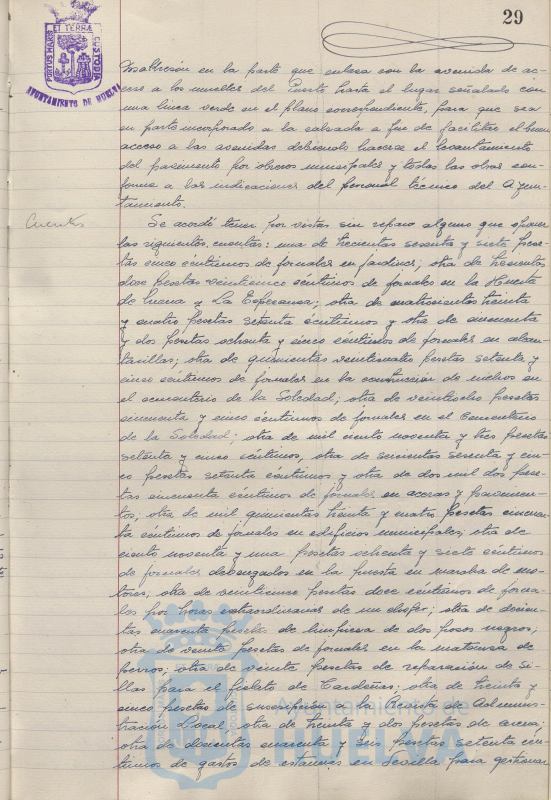 29
PORTUS MARIS ET TERRÆ CUSTODIA
AYUNTAMIENTO DE HUELVA
en la parte que enlaza con la avenida de ac-
ceso a los muelles del Puerto hasta el lugar señalado con
una linea verde en el plano correspondiente, para que sea
en parte incorporado a la calzada a fin de facilitar el buen
acceso a las avenidas debiendo hacerse el levantamiento
del pavimento por obreros municipales y todas las obras con-
forme a las indicaciones del personal técnico del Ayun-
tamiento.
Cuentas
Se acordó tener por vistas sin reparo alguno que oponer
las siguientes cuentas: una de trecientas sesenta y siete pese-
tas cinco céntimos de jornales en jardines; otra de
doce pesetas veinticinco céntimos de jornales en la Huerta
de y La Esperanza; otra de cuatrocientas treinta
y cuatro pesetas setenta céntimos y otra de cincuenta
y dos pesetas ochenta y cinco céntimos de jornales en alcan-
tarillas; otra de quinientas veinticuatro pesetas setenta y
cinco céntimos de jornales en la construcción de nichos en
el cementerio de la Soledad; otra de veintiocho pesetas
cincuenta y cinco céntimos de jornales en el Cementerio
de la Soledad; otra de mil ciento noventa y tres pesetas
setenta y cinco céntimos, otra de seiscientas sesenta y cin-
co pesetas setenta céntimos y otra de dos mil dos pese-
tas cincuenta céntimos de jornales en aceras y pavimen-
tos; otra de mil quinientas treinta y cuatro pesetas cincuen-
ta céntimos de jornales en edificios municipales; otra de
ciento noventa y una pesetas ochenta y siete céntimos
de jornales devengados en la puesta en marcha de mo-
tores; otra de veinticinco pesetas doce céntimos de jorna-
les por horas extraordinarias de un chofer; otra de docien-
tas cuarenta pesetas de limpieza de dos pozos negros;
otra de veinte pesetas de jornales en la matanza de
perros; otra de veinte pesetas de reparación de si-
llas para el fielato de Cardeñas; otra de treinta y
cinco pesetas de suscripción a la Revista de Adminis-
tración Local; otra de treinta y dos pesetas de
otra de doscientas cuarenta y seis pesetas setenta cén-
timos de gastos de estancia en Sevilla para gestionar
Ayuntamiento de
HUELVA